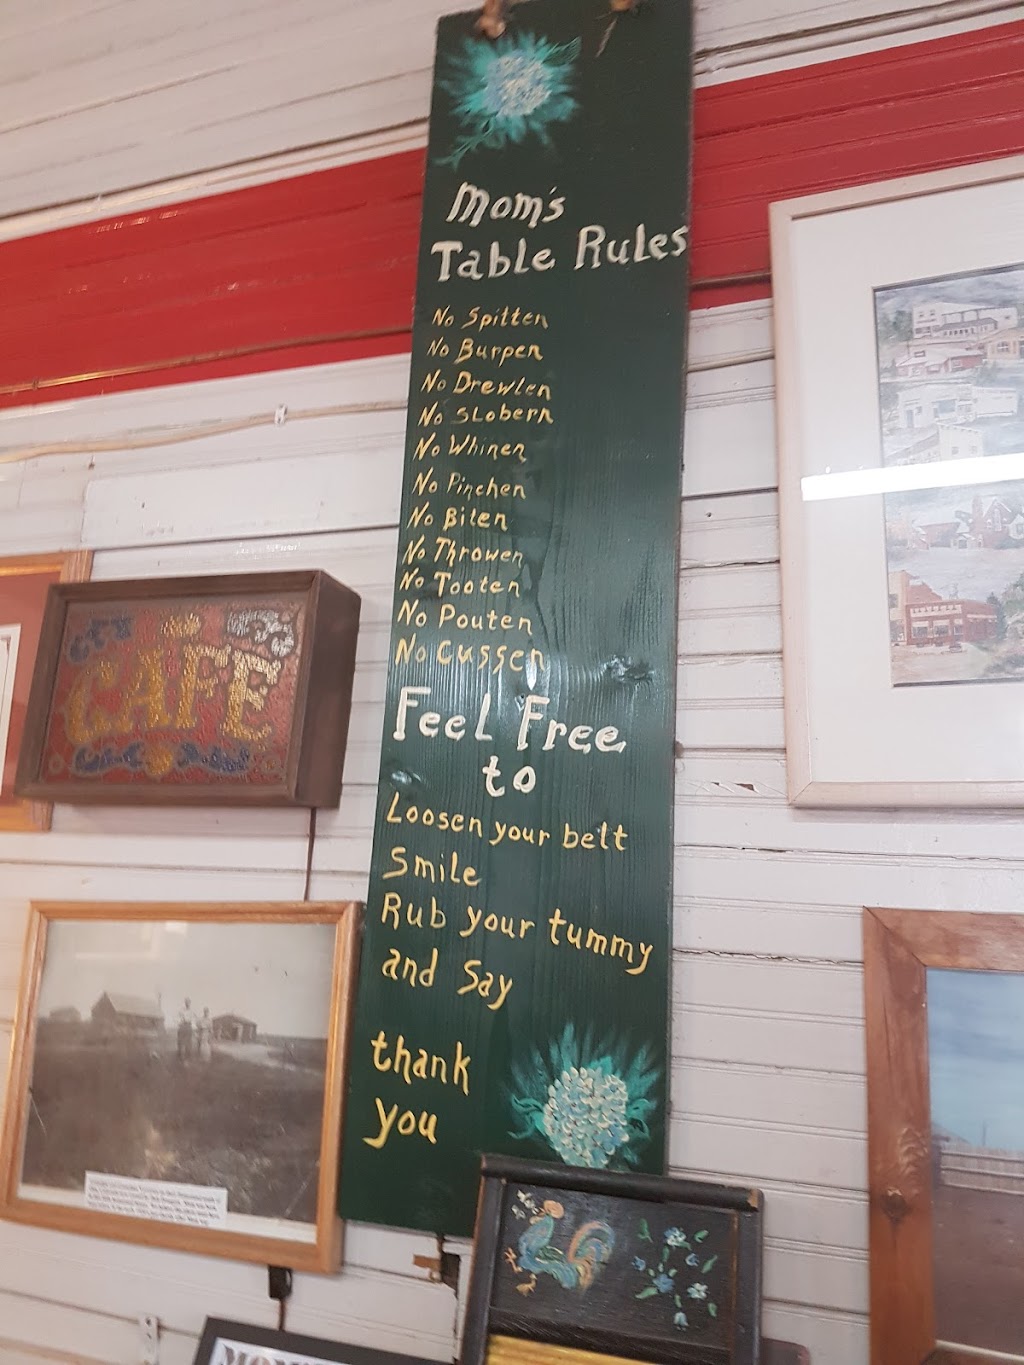 Mom's
Table Rules
No Spitten
No Burpen
No Drewlen
No SLobern
No Whinen
No Pinchen
No Biten
No Throwen
No Tooten
No Pouten
No Cussen
Feel Free
to
Loosen your belt
Smile
Rub your tummy
and say
thank
you
CAFE